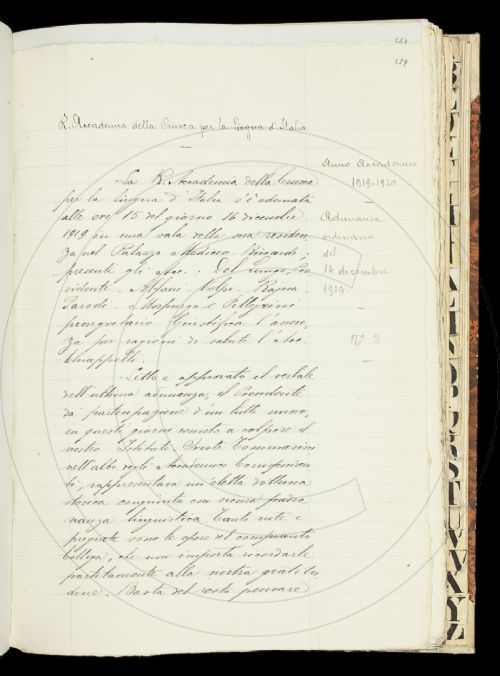 559
R. Accademia della Crusca per la Lingua d'Italia
Anno Accademico
1919-1920
Adunanza
ordinaria
del
16 dicembre
1919
N° 2
La R. Accademia della Crusca
per la Lingua d'Italia s'è adunata
alle ore 15 del giorno 16 dicembre
1919 in una sala della sua residen
za nel Palazzo Mediceo Riccardi;
presenti gli Acc.: Del Lungo, Pre
sidente - Mazzoni - Volpi - Rajna
Parodi - Morpurgo e Pellegrini
prosegretario. Giustifica l'assen
za per ragioni di salute l'Acc.
Chiappelli.
Letto e approvato il verbale
dell'ultima adunanza, il Presidente
dà partecipazione d'un lutto nuovo,
in questi giorni venuto a colpire il
nostro Istituto. Oreste Tommasini
nell'albo degli Accademici Corrisponden
ti, rappresentava un'eletta dottrina
storica congiunta con sicura padro
nanza linguistica. Tanto note e
pregiate sono le opere del compianto
Collega, che non importa ricordarle
partitamente alla nostra gratitu
dine. Basta del resto pensare
B
I
L
I
N
O
P
S
T
U
V
X
Y
Z